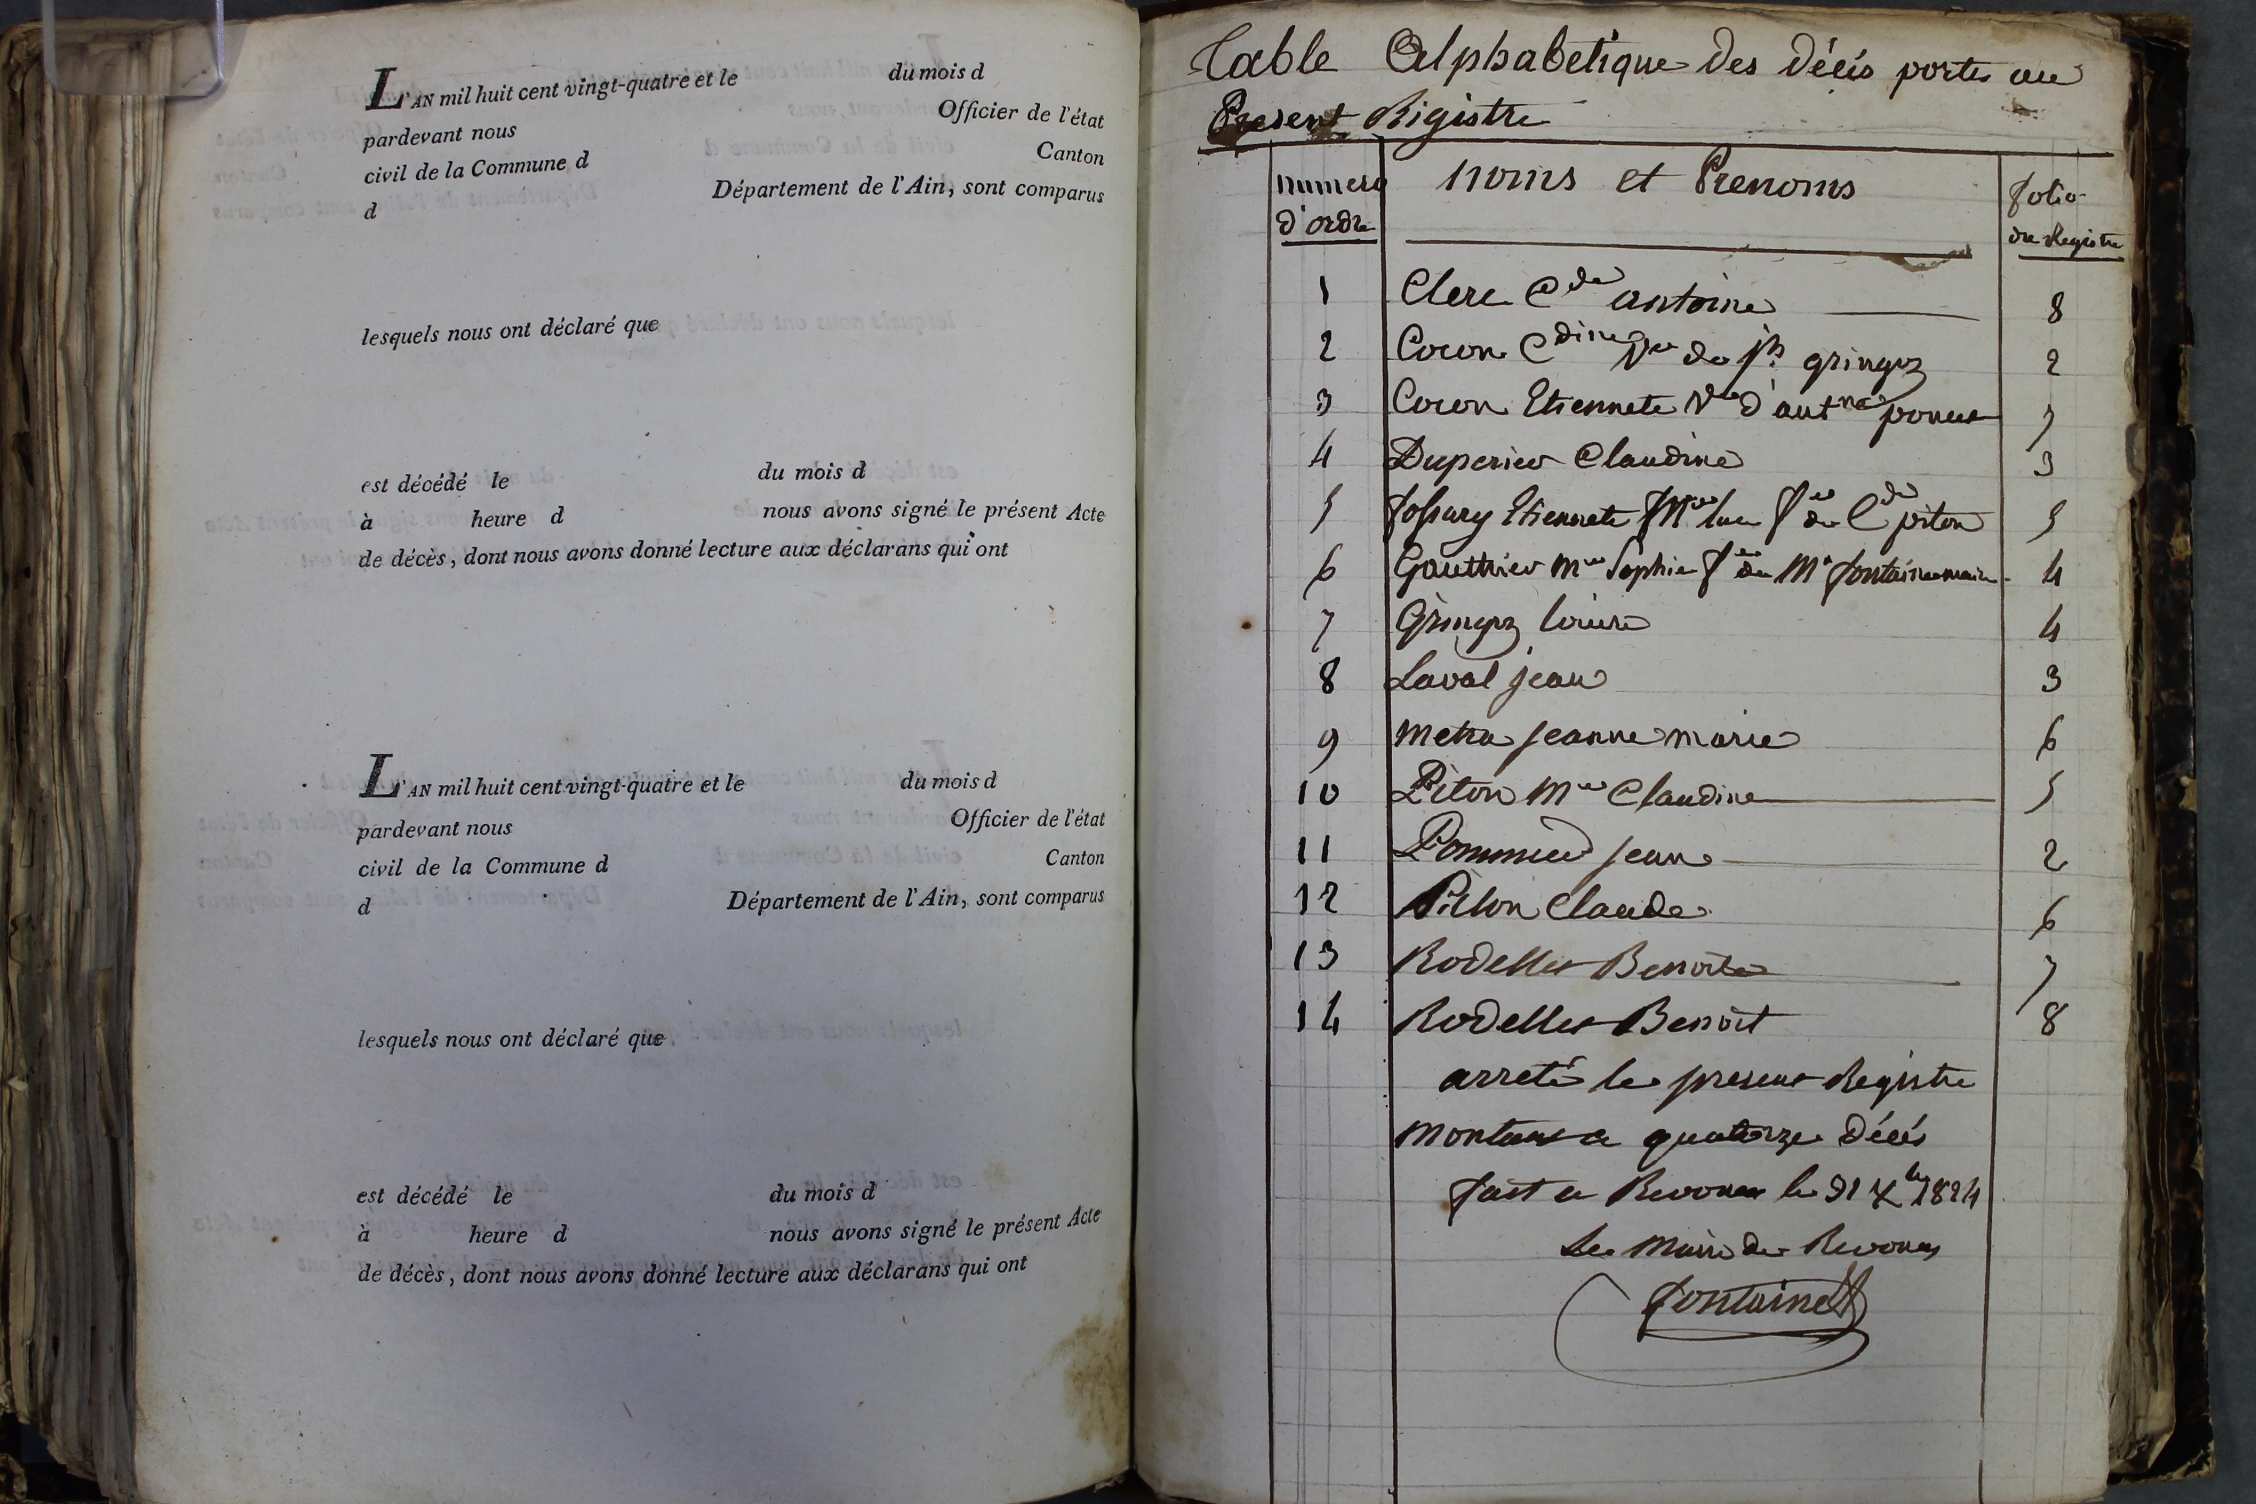 L'AN mil huit cent vingt-quatre et le du mois d
pardevant nous Officier de l'état
civil de la Commune d Canton
d Département de l'Ain, sont comparus
lesquels nous ont déclaré que
est décédé le du mois d
à heure d nous avons signé le présent Acte
de décès, dont nous avons donné lecture aux déclarans qui ont
L'AN mil huit cent vingt-quatre et le du mois d
pardevant nous Officier de l'état
civil de la Commune d Canton
d Département de l'Ain, sont comparus
lesquels nous ont déclaré que
est décédé le du mois d
à heure d nous avons signé le présent Acte
de décès, dont nous avons donné lecture aux déclarans qui ont
Table Alphabetique des décés portés au
Present Registre
numero d'ordre noms et Prenoms folio du Registre
1 Clerc Cde antoine 8
2 Coron Cdine Ve de jh gringoz 2
3 Coron Etiennete Ve d'antne 7
4 Duperier Claudine 3
5 Etiennete fe de Cde piton 5
6 Gauthier Mie Sophie fe de Mr fontaine maire 4
7 Gringoz louise 4
8 Laval jean 3
9 Metra jeanne marie 6
10 Piton Mie Claudine 5
11 Pommier jean 2
12 Piton Claude 6
13 Rodellet Benoite 7
14 Rodellet Benoit 8
arreté le present Registre
montant a quatorze décés
fait a Revonas le 31 Xbre 1824
Le Maire de Revonas
fontaine